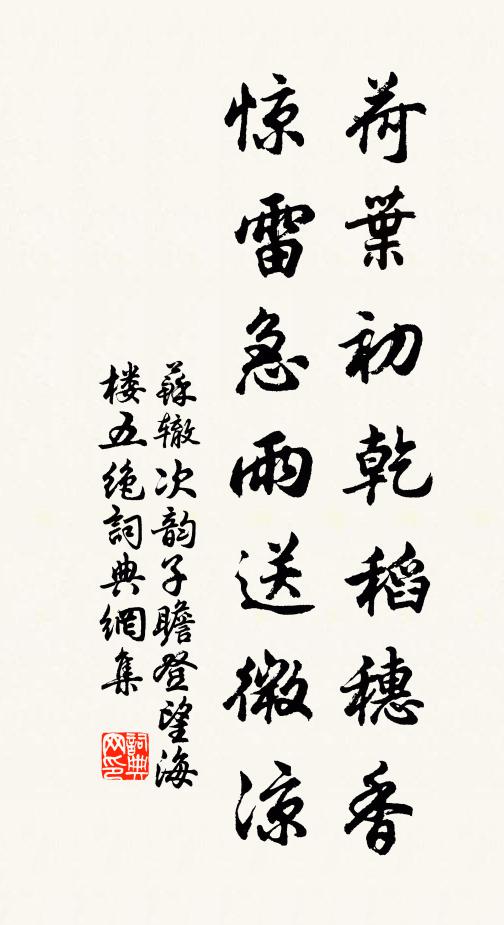 荷葉初乾稻穗香
惊雷急雨送微凉
蘇辙次韵子瞻登望海
楼五绝詞典網集
詞典网印